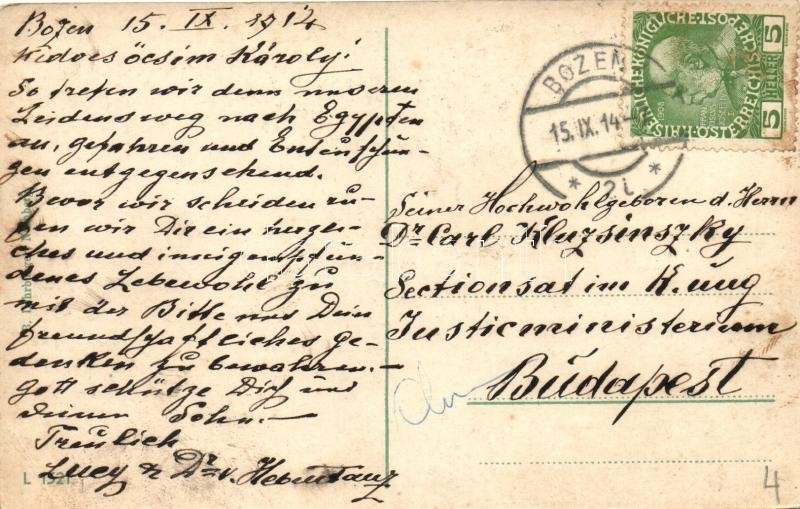 Bozen 15. IX. 1914
Kedves öcsém Károly!
So treten wir denn unseren
Leidensweg nach Egypten
an, gefahren und Enttäuschun-
gen entgegensehend.
Bevor wir scheiden ru-
fen wir Dir ein herzli-
ches und innigempfun-
denes Lebewohl zu
mit der Bitte uns Dein
freundschaftliches ge-
denken zu bewahren.
gott schütze Dich und
Deinen Sohn.
Treulich
Lucy & Dr. v.
L 1521
BOZEN
15. IX. 14
* 2i *
KAISERLICHE KÖNIGLICHE ÖSTERREICHISCHE POST
5 HELLER 5
1908
Seiner Hochwohlgeboren d. Herrn
Dr. Carl Kluzsinszky
Sectionsat im K. ung
Justicministerium
Budapest
4